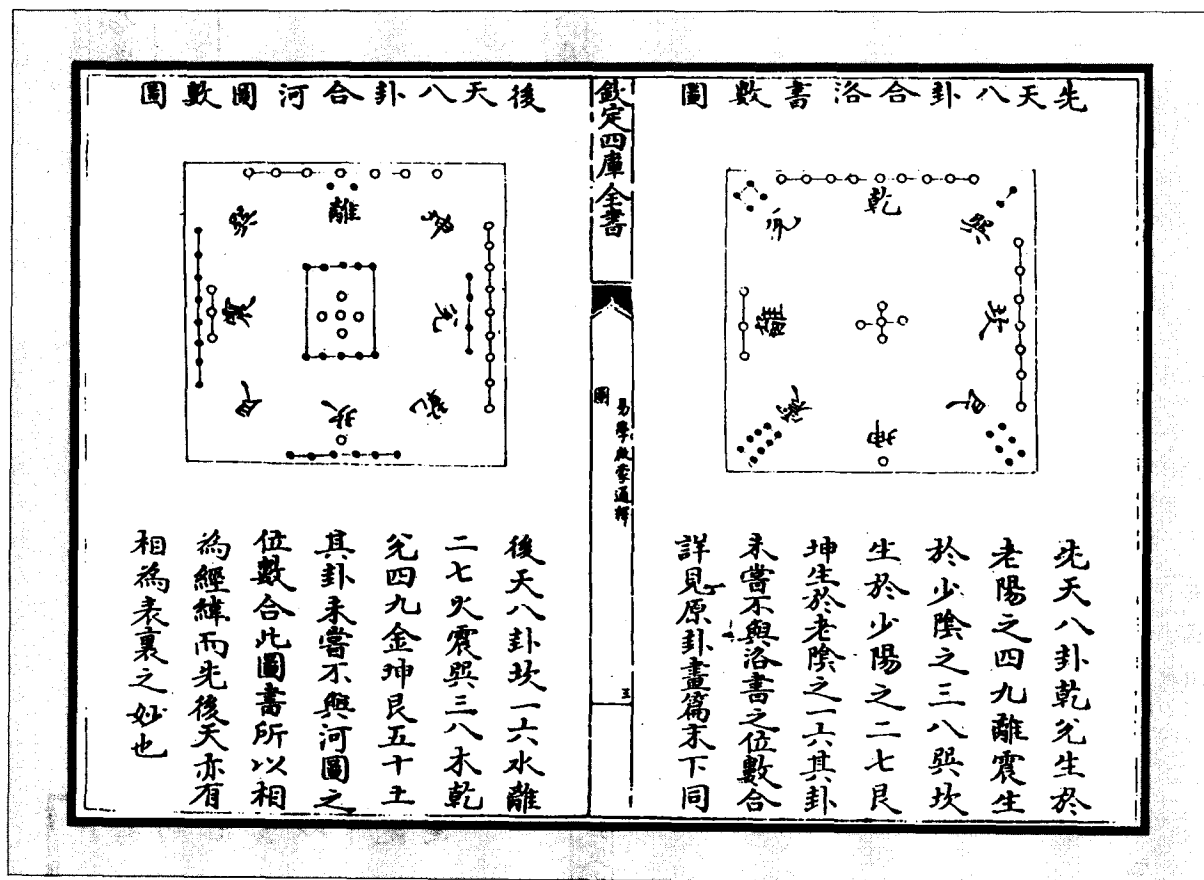 先天八卦合洛書數圖
乾
兌
巽
離
坎
震
艮
坤
先天八卦乾兌生於
老陽之四九離震生
於少陰之三八巽坎
生於少陽之二七艮
坤生於老陰之一六其卦
未嘗不與洛書之位數合
詳見原卦畫篇末下同
欽定四庫全書
易學啟蒙通釋
圖
五
後天八卦合河圖數圖
離
巽
坤
震
兌
艮
坎
乾
後天八卦坎一六水離
二七火震巽三八木乾
兌四九金坤艮五十土
其卦未嘗不與河圖之
位數合此圖書所以相
為經緯而先後天亦有
相為表裏之妙也